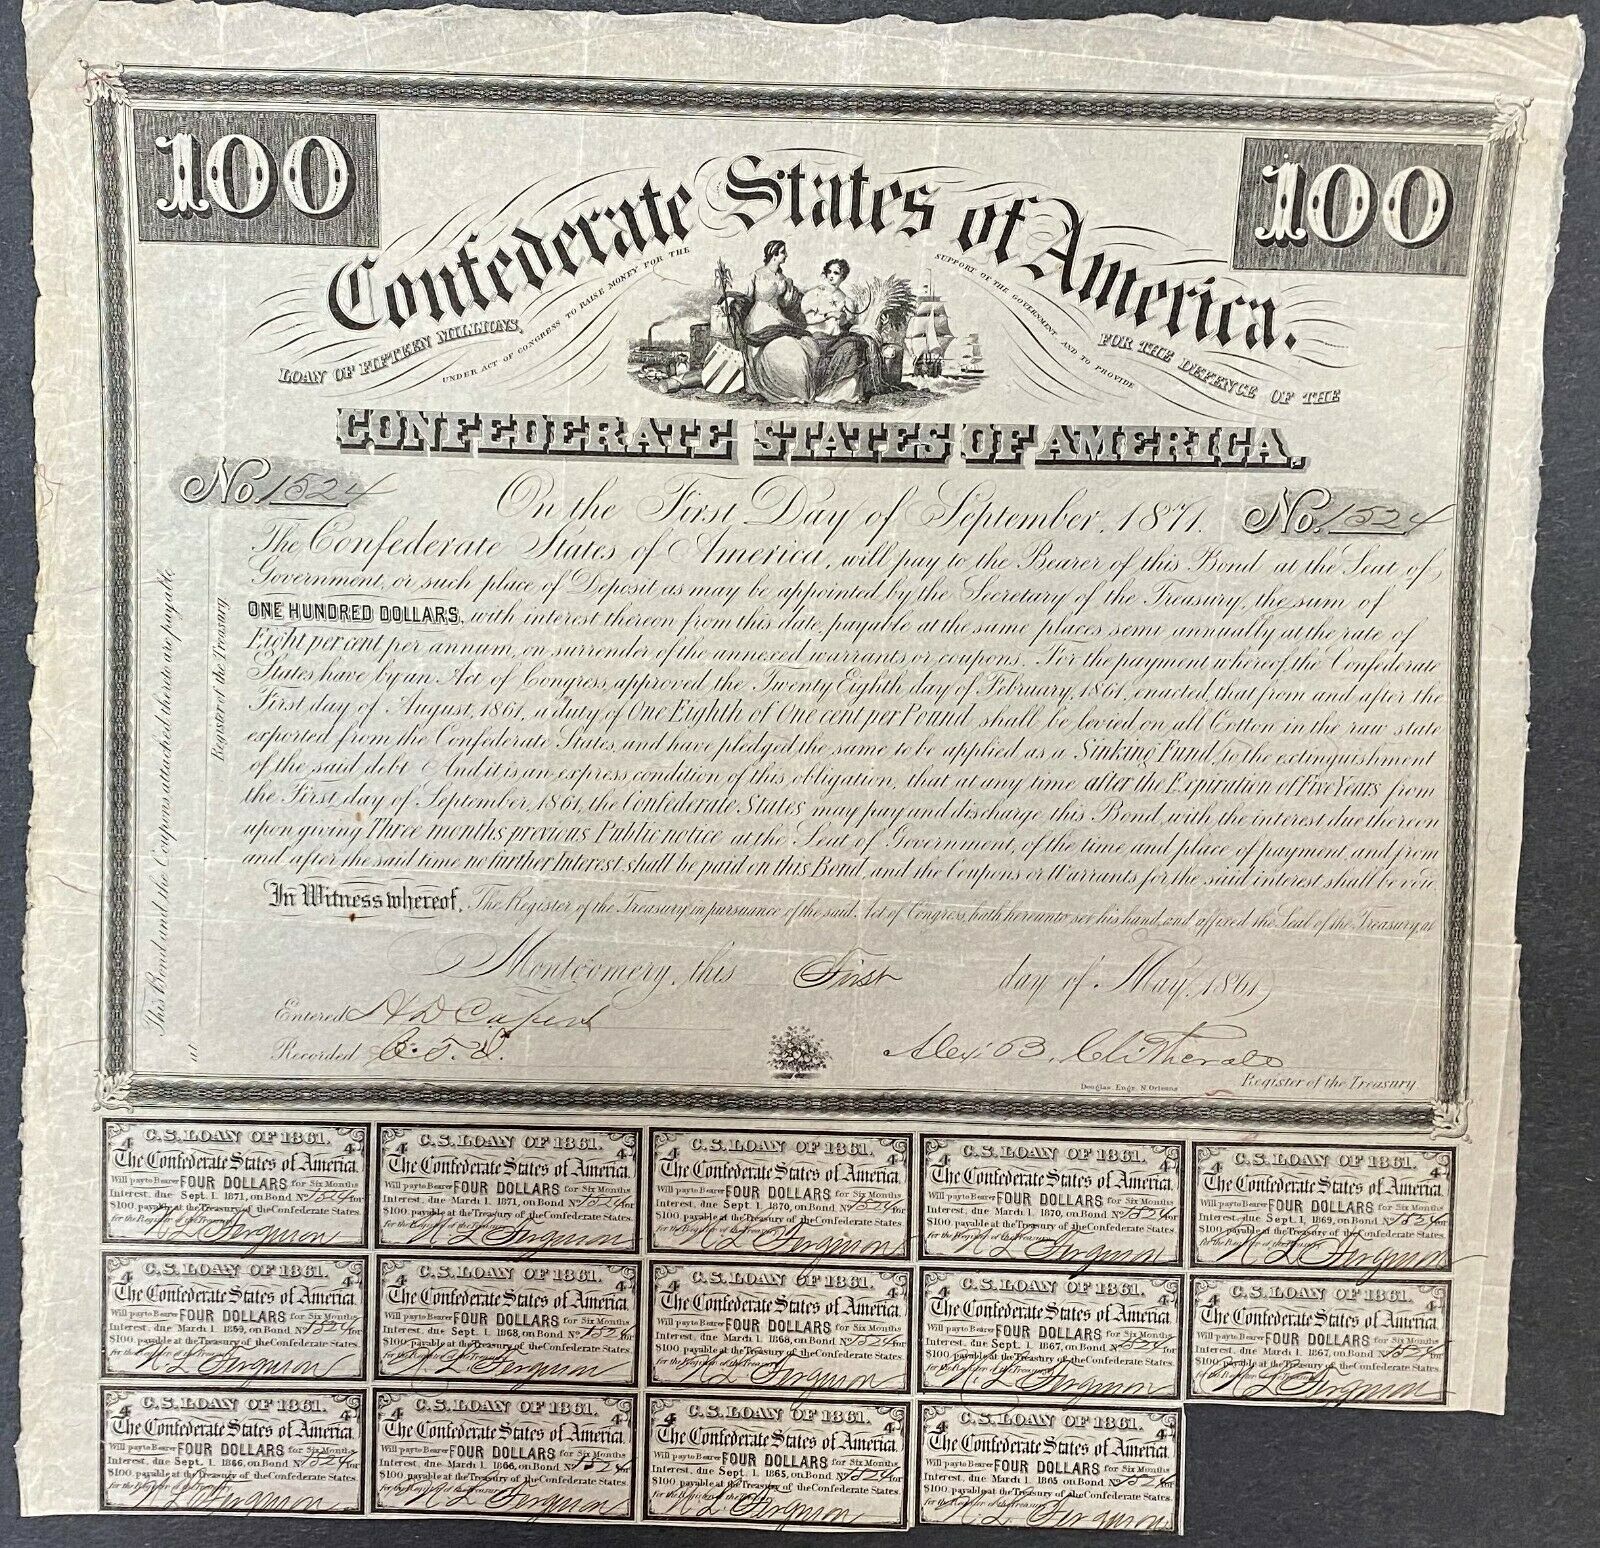 100
100
Confederate States of America.
LOAN OF FIFTEEN MILLIONS,
UNDER ACT OF CONGRESS TO RAISE MONEY FOR THE
SUPPORT OF THE GOVERNMENT AND TO PROVIDE
FOR THE DEFENCE OF THE
CONFEDERATE STATES OF AMERICA,
No. 1524
No. 1524
On the First Day of September, 1871.
The Confederate States of America, will pay to the Bearer of this Bond at the Seat of
Government, or such place of Deposit as may be appointed by the Secretary of the Treasury, the sum of
ONE HUNDRED DOLLARS, with interest thereon from this date, payable at the same places semi annually at the rate of
Eight per cent per annum, on surrender of the annexed warrants or coupons. For the payment whereof, the Confederate
States have by an Act of Congress, approved the Twenty Eighth day of February, 1861, enacted, that from and after the
First day of August, 1861, a duty of One Eighth of One cent per Pound shall be levied on all Cotton in the raw state
exported from the Confederate States, and have pledged the same to be applied as a Sinking Fund, to the extinguishment
of the said debt. And it is an express condition of this obligation, that at any time after the Expiration of Five Years from
the First day of September, 1861, the Confederate States may pay and discharge this Bond, with the interest due thereon
upon giving Three months previous Public notice at the Seat of Government, of the time and place of payment, and from
and after the said time no further Interest shall be paid on this Bond, and the Coupons or Warrants for the said interest shall be void.
In Witness whereof, The Register of the Treasury, in pursuance of the said Act of Congress, hath hereunto set his hand, and affixed the Seal of the Treasury, at
Montgomery, this First day of May, 1861
Entered H D Capers
Recorded C. T. J.
Alex B. Clitherall
Douglas Engr. N. Orleans
Register of the Treasury
This Bond and the Coupons attached thereto are payable
at
Register of the Treasury
4 C.S. LOAN OF 1861. 4
The Confederate States of America.
Will pay to Bearer FOUR DOLLARS for Six Months
Interest, due Sept. 1. 1871, on Bond No 1524 for
$100, payable at the Treasury of the Confederate States.
for the Register of the Treasury
H L Ferguson
4 C.S. LOAN OF 1861. 4
The Confederate States of America.
Will pay to Bearer FOUR DOLLARS for Six Months
Interest, due March 1. 1871, on Bond No 1524 for
$100, payable at the Treasury of the Confederate States.
for the Register of the Treasury
H L Ferguson
4 C.S. LOAN OF 1861. 4
The Confederate States of America.
Will pay to Bearer FOUR DOLLARS for Six Months
Interest, due Sept. 1. 1870, on Bond No 1524 for
$100, payable at the Treasury of the Confederate States.
for the Register of the Treasury
H L Ferguson
4 C.S. LOAN OF 1861. 4
The Confederate States of America.
Will pay to Bearer FOUR DOLLARS for Six Months
Interest, due March 1. 1870, on Bond No 1524 for
$100, payable at the Treasury of the Confederate States.
for the Register of the Treasury
H L Ferguson
4 C.S. LOAN OF 1861. 4
The Confederate States of America.
Will pay to Bearer FOUR DOLLARS for Six Months
Interest, due Sept. 1. 1869, on Bond No 1524 for
$100, payable at the Treasury of the Confederate States.
for the Register of the Treasury
H L Ferguson
4 C.S. LOAN OF 1861. 4
The Confederate States of America.
Will pay to Bearer FOUR DOLLARS for Six Months
Interest, due March 1. 1869, on Bond No 1524 for
$100, payable at the Treasury of the Confederate States.
for the Register of the Treasury
H L Ferguson
4 C.S. LOAN OF 1861. 4
The Confederate States of America.
Will pay to Bearer FOUR DOLLARS for Six Months
Interest, due Sept. 1. 1868, on Bond No 1524 for
$100, payable at the Treasury of the Confederate States.
for the Register of the Treasury
H L Ferguson
4 C.S. LOAN OF 1861. 4
The Confederate States of America.
Will pay to Bearer FOUR DOLLARS for Six Months
Interest, due March 1. 1868, on Bond No 1524 for
$100, payable at the Treasury of the Confederate States.
for the Register of the Treasury
H L Ferguson
4 C.S. LOAN OF 1861. 4
The Confederate States of America.
Will pay to Bearer FOUR DOLLARS for Six Months
Interest, due Sept. 1. 1867, on Bond No 1524 for
$100, payable at the Treasury of the Confederate States.
for the Register of the Treasury
H L Ferguson
4 C.S. LOAN OF 1861. 4
The Confederate States of America.
Will pay to Bearer FOUR DOLLARS for Six Months
Interest, due March 1. 1867, on Bond No 1524 for
$100, payable at the Treasury of the Confederate States.
for the Register of the Treasury
H L Ferguson
4 C.S. LOAN OF 1861. 4
The Confederate States of America.
Will pay to Bearer FOUR DOLLARS for Six Months
Interest, due Sept. 1. 1866, on Bond No 1524 for
$100, payable at the Treasury of the Confederate States.
for the Register of the Treasury
H L Ferguson
4 C.S. LOAN OF 1861. 4
The Confederate States of America.
Will pay to Bearer FOUR DOLLARS for Six Months
Interest, due March 1. 1866, on Bond No 1524 for
$100, payable at the Treasury of the Confederate States.
for the Register of the Treasury
H L Ferguson
4 C.S. LOAN OF 1861. 4
The Confederate States of America.
Will pay to Bearer FOUR DOLLARS for Six Months
Interest, due Sept. 1. 1865, on Bond No 1524 for
$100, payable at the Treasury of the Confederate States.
for the Register of the Treasury
H L Ferguson
4 C.S. LOAN OF 1861. 4
The Confederate States of America.
Will pay to Bearer FOUR DOLLARS for Six Months
Interest, due March 1 1865 on Bond No 1524 for
$100, payable at the Treasury of the Confederate States.
for the Register of the Treasury
H L Ferguson